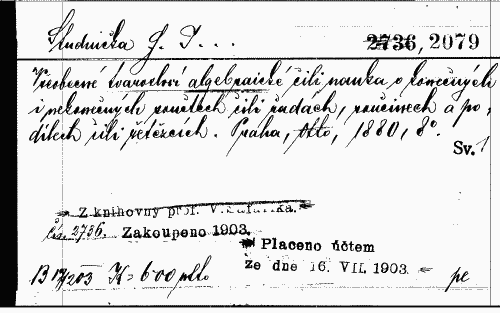 Studnička F. J. ...
2736, 2079
Všeobecné tvarosloví algebraické čili nauka o konečných
i nekonečných součtech čili řadách, součinech a po-
dílech čili řetězcích. Praha, Otto, 1880, 8°.
Sv. 1
Z knihovny prof. V. Šafaříka.
čís. 2736. Zakoupeno 1903.
Placeno účtem
ze dne 16. VII. 1903.
K = 6·00
pe